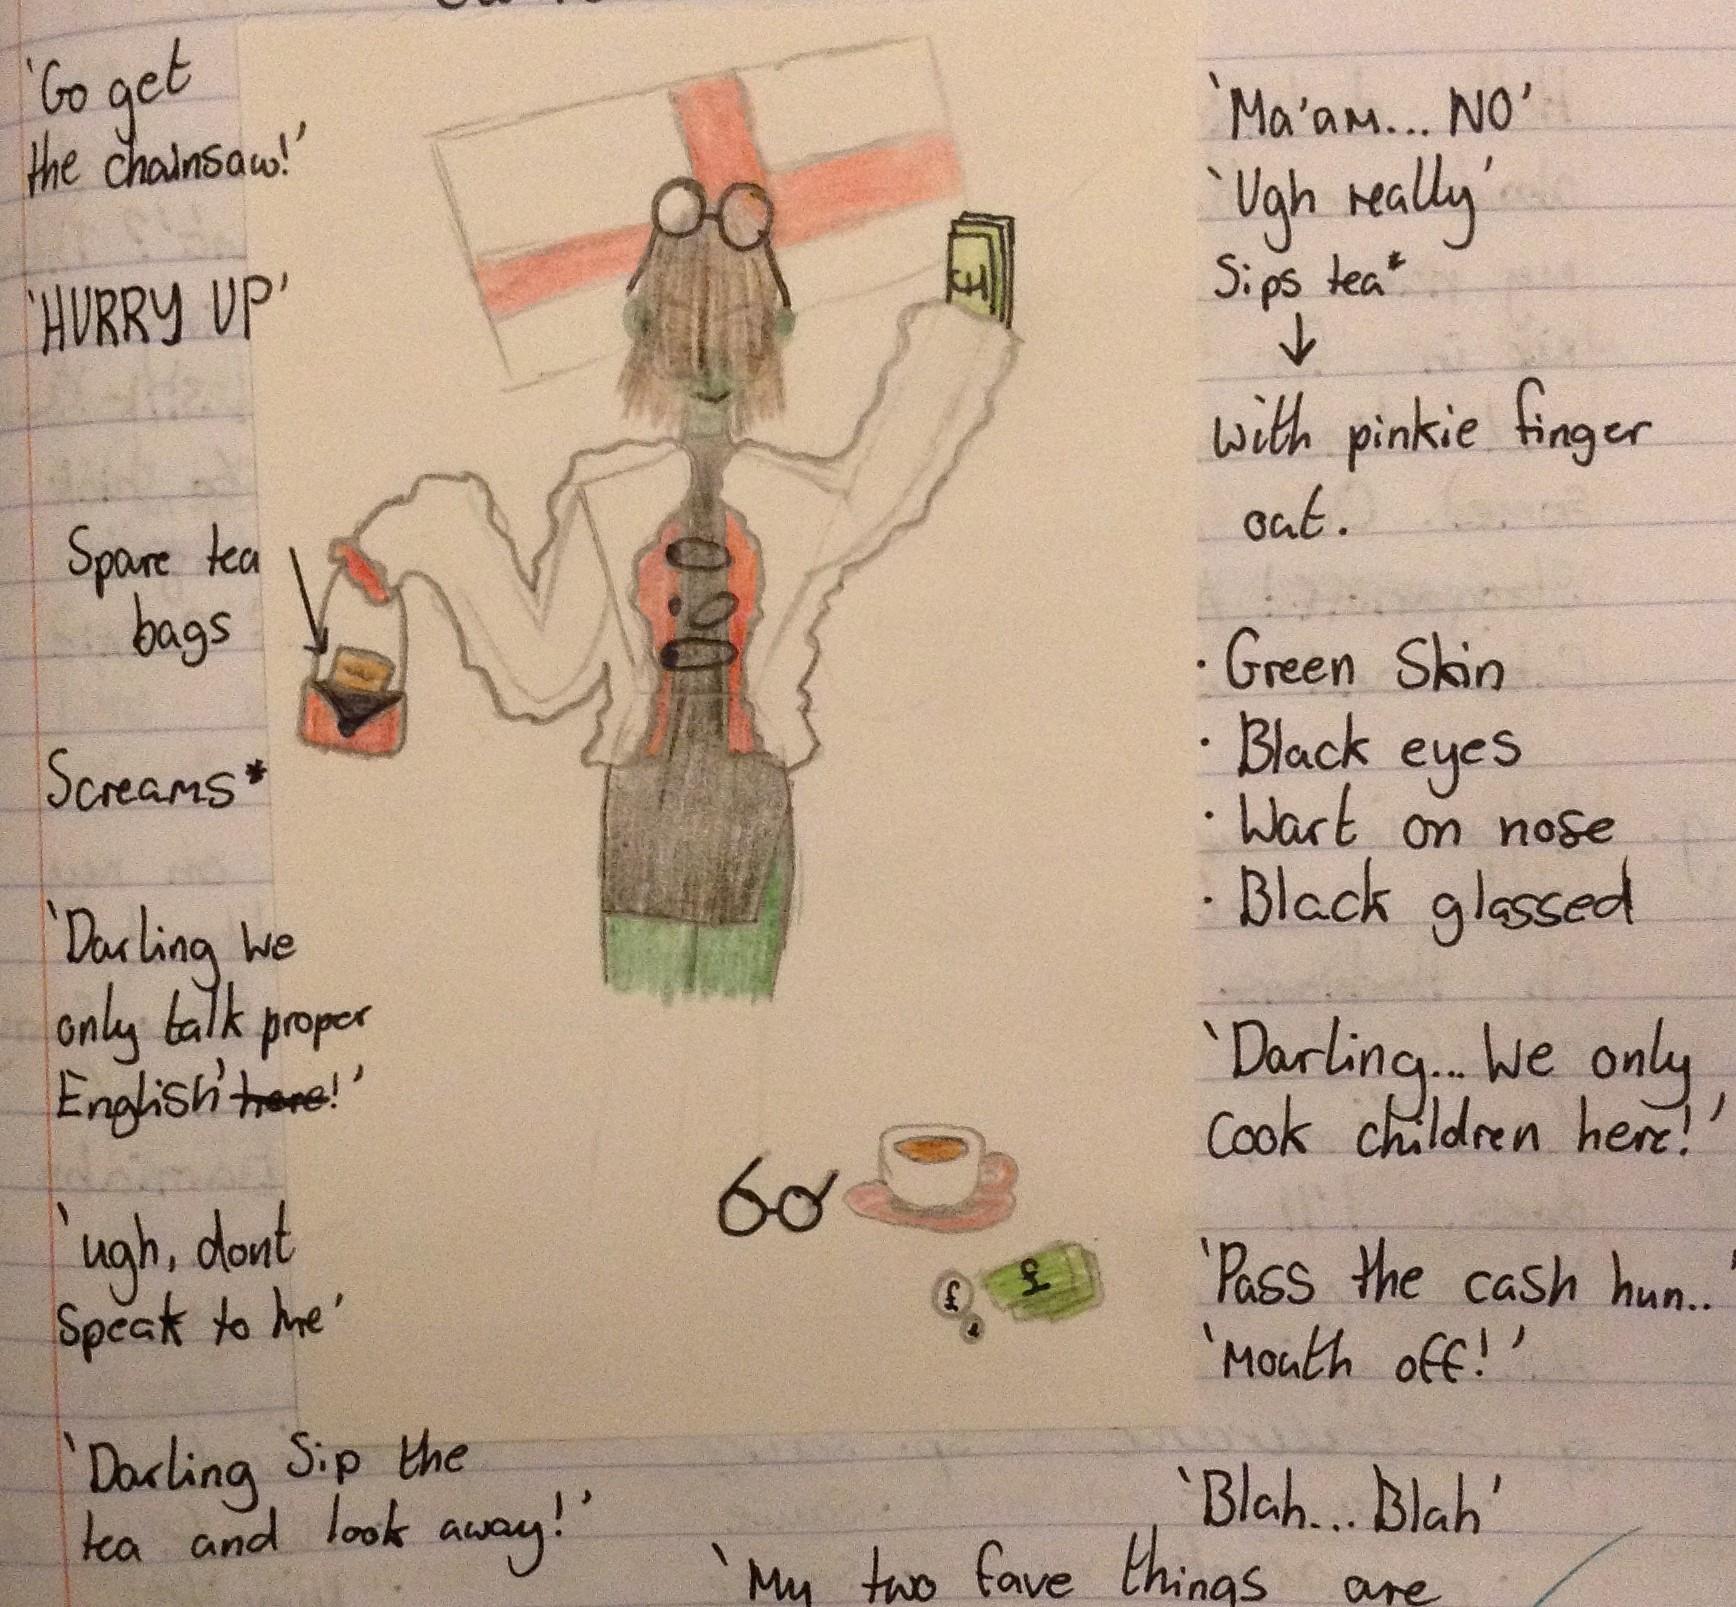 'Go get
the chainsaw!'
'HURRY UP'
Spare tea
bags
Screams*
'Darling we
only talk proper
English' here!'
'ugh, dont
speak to me'
'Darling Sip the
tea and look away!'
£
£
£
'Ma'am... NO'
'Ugh really'
Sips tea*
With pinkie finger
out.
· Green Skin
· Black eyes
· Wart on nose
· Black glassed
'Darling... We only
Cook children here!'
'Pass the cash hun..'
'Mouth off!'
'Blah... Blah'
'My two fave things are